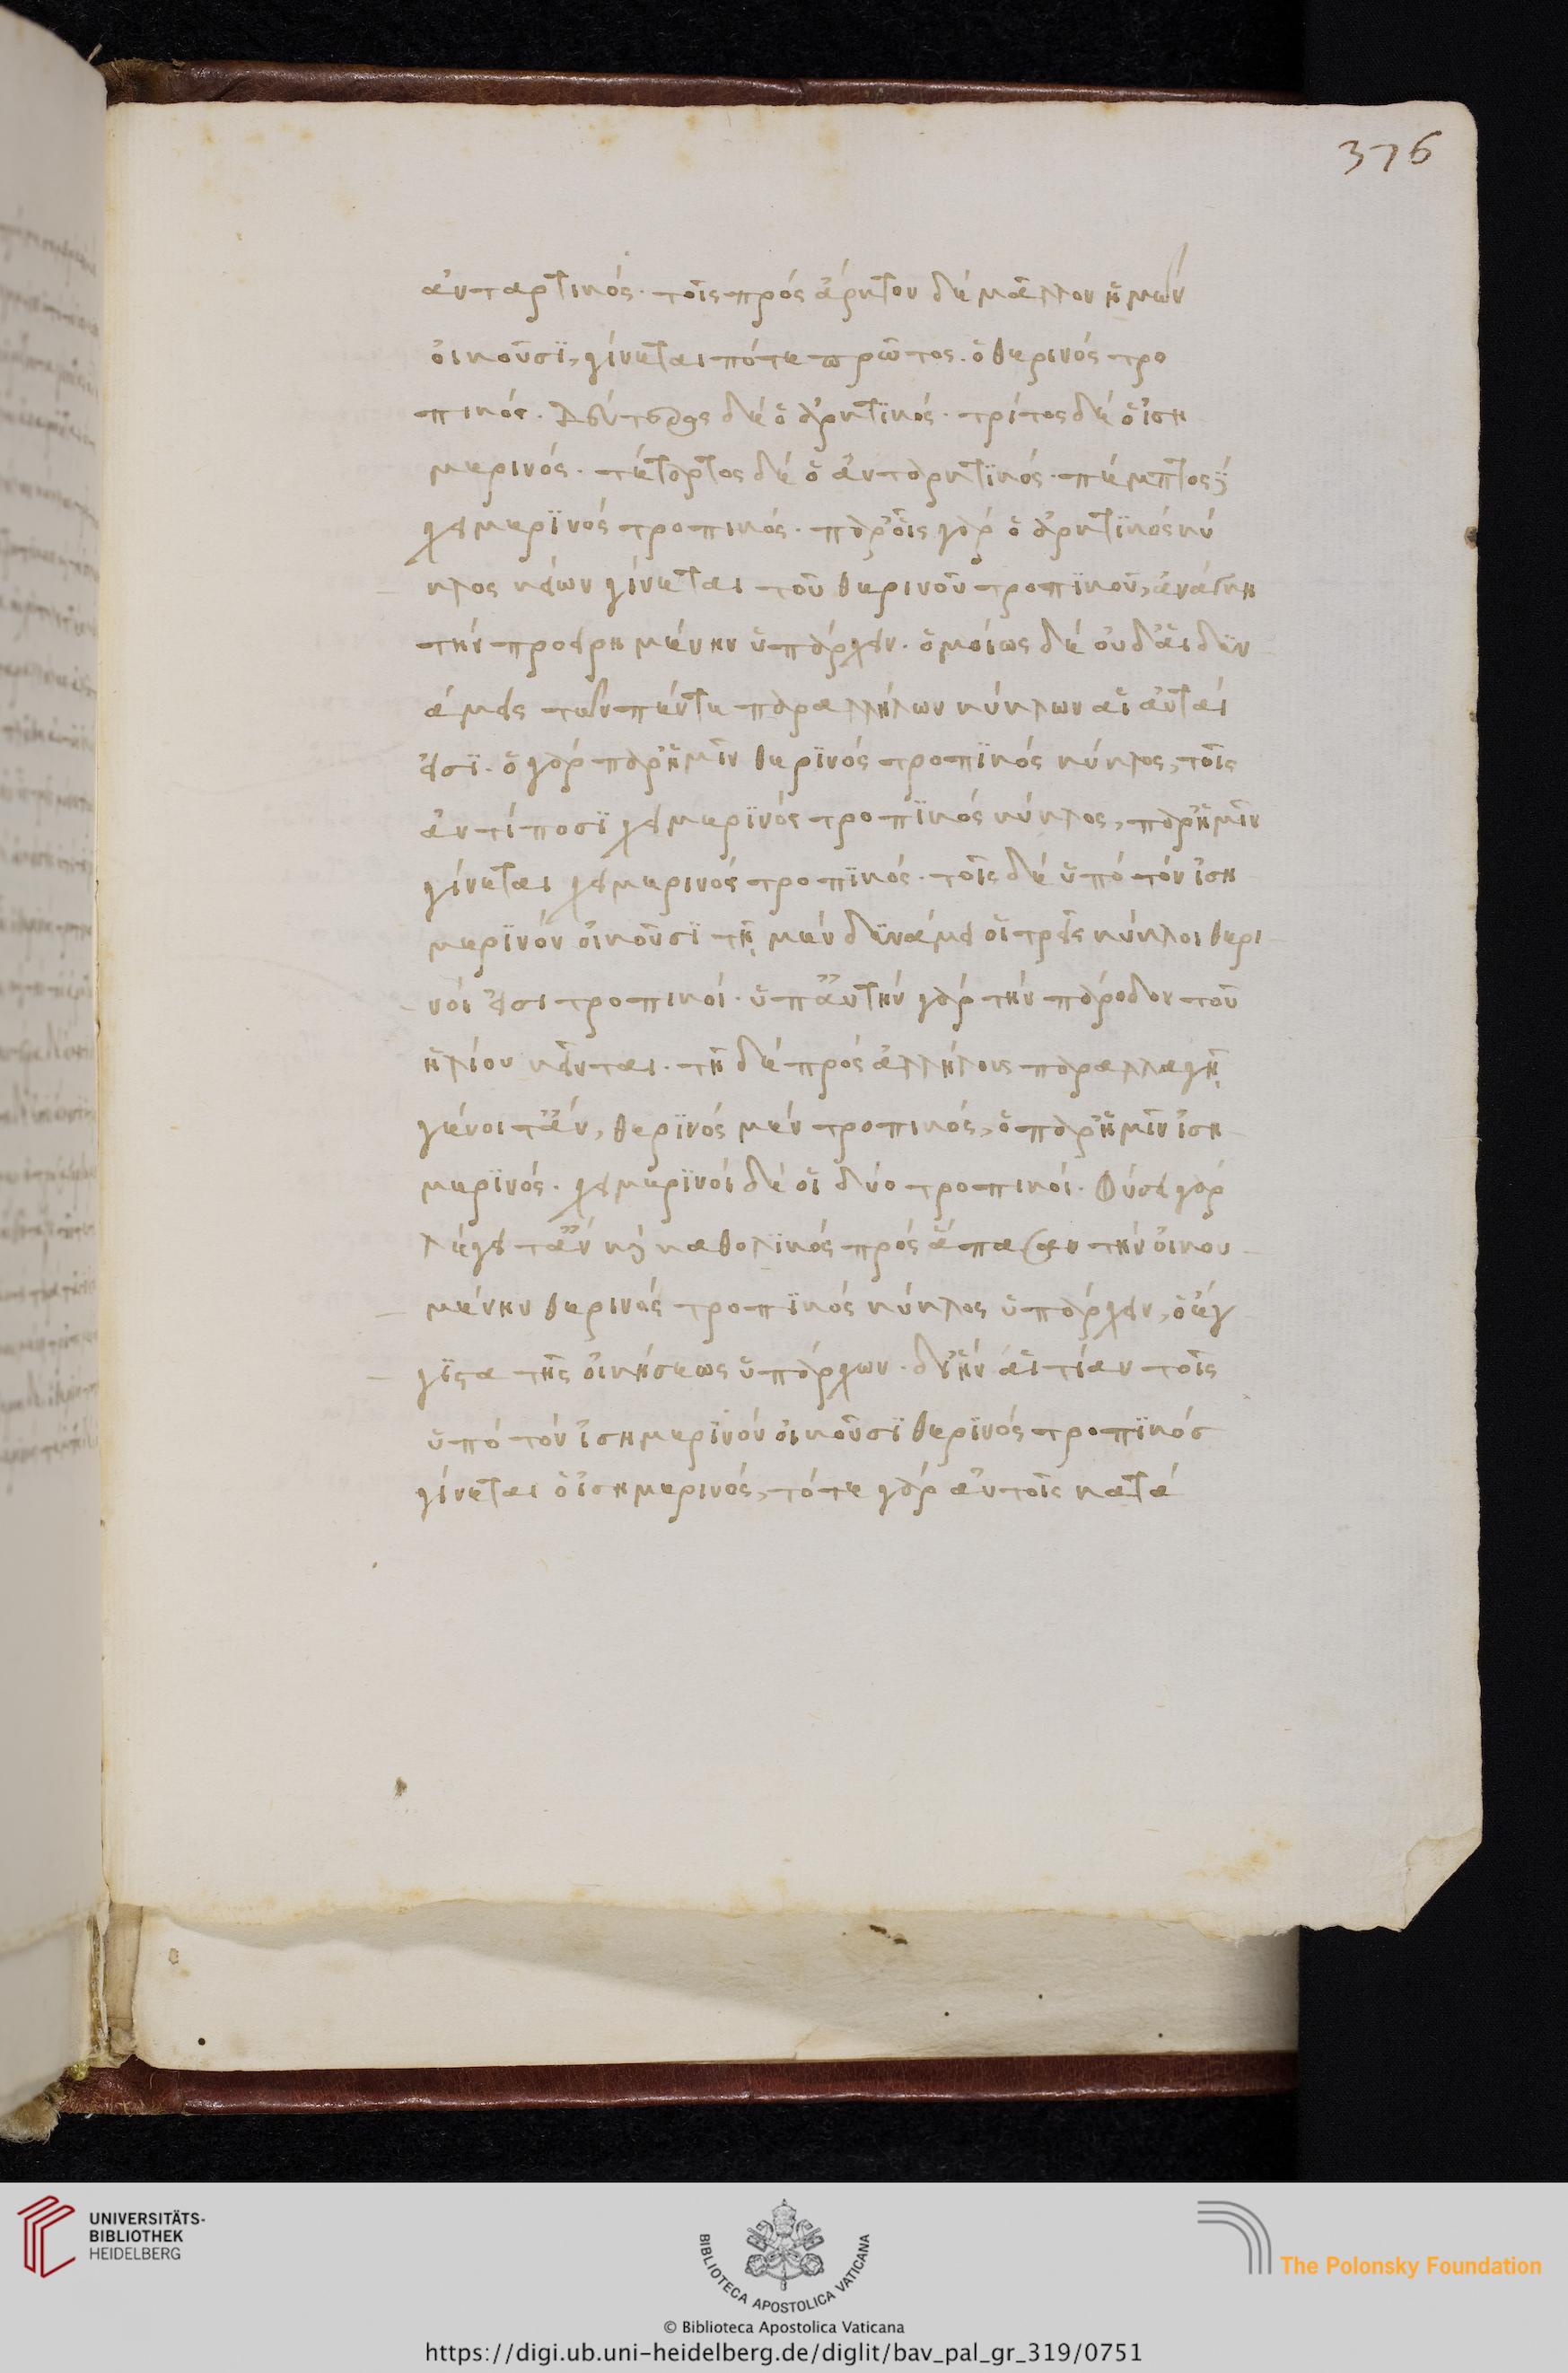 376
ἀνταρκτικός· τοῖς πρὸς ἄρκτον δὲ μᾶλλον ἡμῶν
οἰκοῦσϊ, γίνεται πότε πρῶτος ὁ θερινός τρο
πικός. δεύτερος δὲ ὁ ἀρκτϊκός· τρίτος δὲ ὁ ἰση
μερινός· τέταρτος δὲ ὁ ἀνταρκτϊκός· πέμπτος ὁ
χειμερϊνός τροπικός· παρ' οἷς γὰρ ὁ ἀρκτϊκός κύ
κλος μείζων γίνεται τοῦ θερινοῦ τροπϊκοῦ, ἀνάγκη
τὴν προειρημένην ὑπάρχειν. ὁμοίως δὲ οὐδ' αἱ δυν
άμεις τῶν πέντε παραλλήλων κύκλων αἱ αὐταί
εἰσϊ. ὁ γὰρ παρ' ἡμῖν θερϊνός τροπϊκός κύκλος, τοῖς
ἀντίποσϊ χειμερϊνός τροπϊκός κύκλος, παρ' ἡμῖν
γίνεται χειμερινός τροπϊκός· τοῖς δὲ ὑπό τόν ἰση
μερϊνόν οἰκοῦσϊ τῇ μέν δϋνάμει οἱ τρεῖς κύκλοι θερι
νοί εἰσι τροπικοί· ὑπ' αὐτήν γὰρ τήν πάροδον τοῦ
ἡλίου κεῖνται. τῇ δὲ πρός ἀλλήλους παραλλαγῇ
γένοιτ' ἄν, θερϊνός μέν τροπικός, ὁ παρ' ἡμῖν ἰση
μερϊνός. χειμερϊνοί δὲ οἱ δύο τροπικοί. Φύσει γὰρ
λέγετ' ἄν καὶ καθολϊκός πρός ἅπασαν τήν οἰκου
μένην θερινός τροπϊκός κύκλος ὑπάρχειν, ὁ ἔγ
γϊστα τῆς οἰκήσεως ὑπάρχων. δι' ἥν αἰτίαν τοῖς
ὑπό τόν ἰσημερϊνόν οἰκοῦσϊ θερϊνός τροπϊκός
γίνεται ὁ ἰσημερινός, τότε γὰρ αὐτοῖς κατά
UNIVERSITÄTS-
BIBLIOTHEK
HEIDELBERG
BIBLIOTECA APOSTOLICA VATICANA
The Polonsky Foundation
© Biblioteca Apostolica Vaticana
https://digi.ub.uni-heidelberg.de/diglit/bav_pal_gr_319/0751